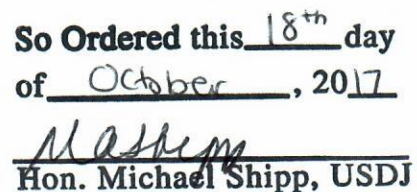 So Ordered this 18th day
of October, 2017
MAShipp
Hon. Michael Shipp, USDJ